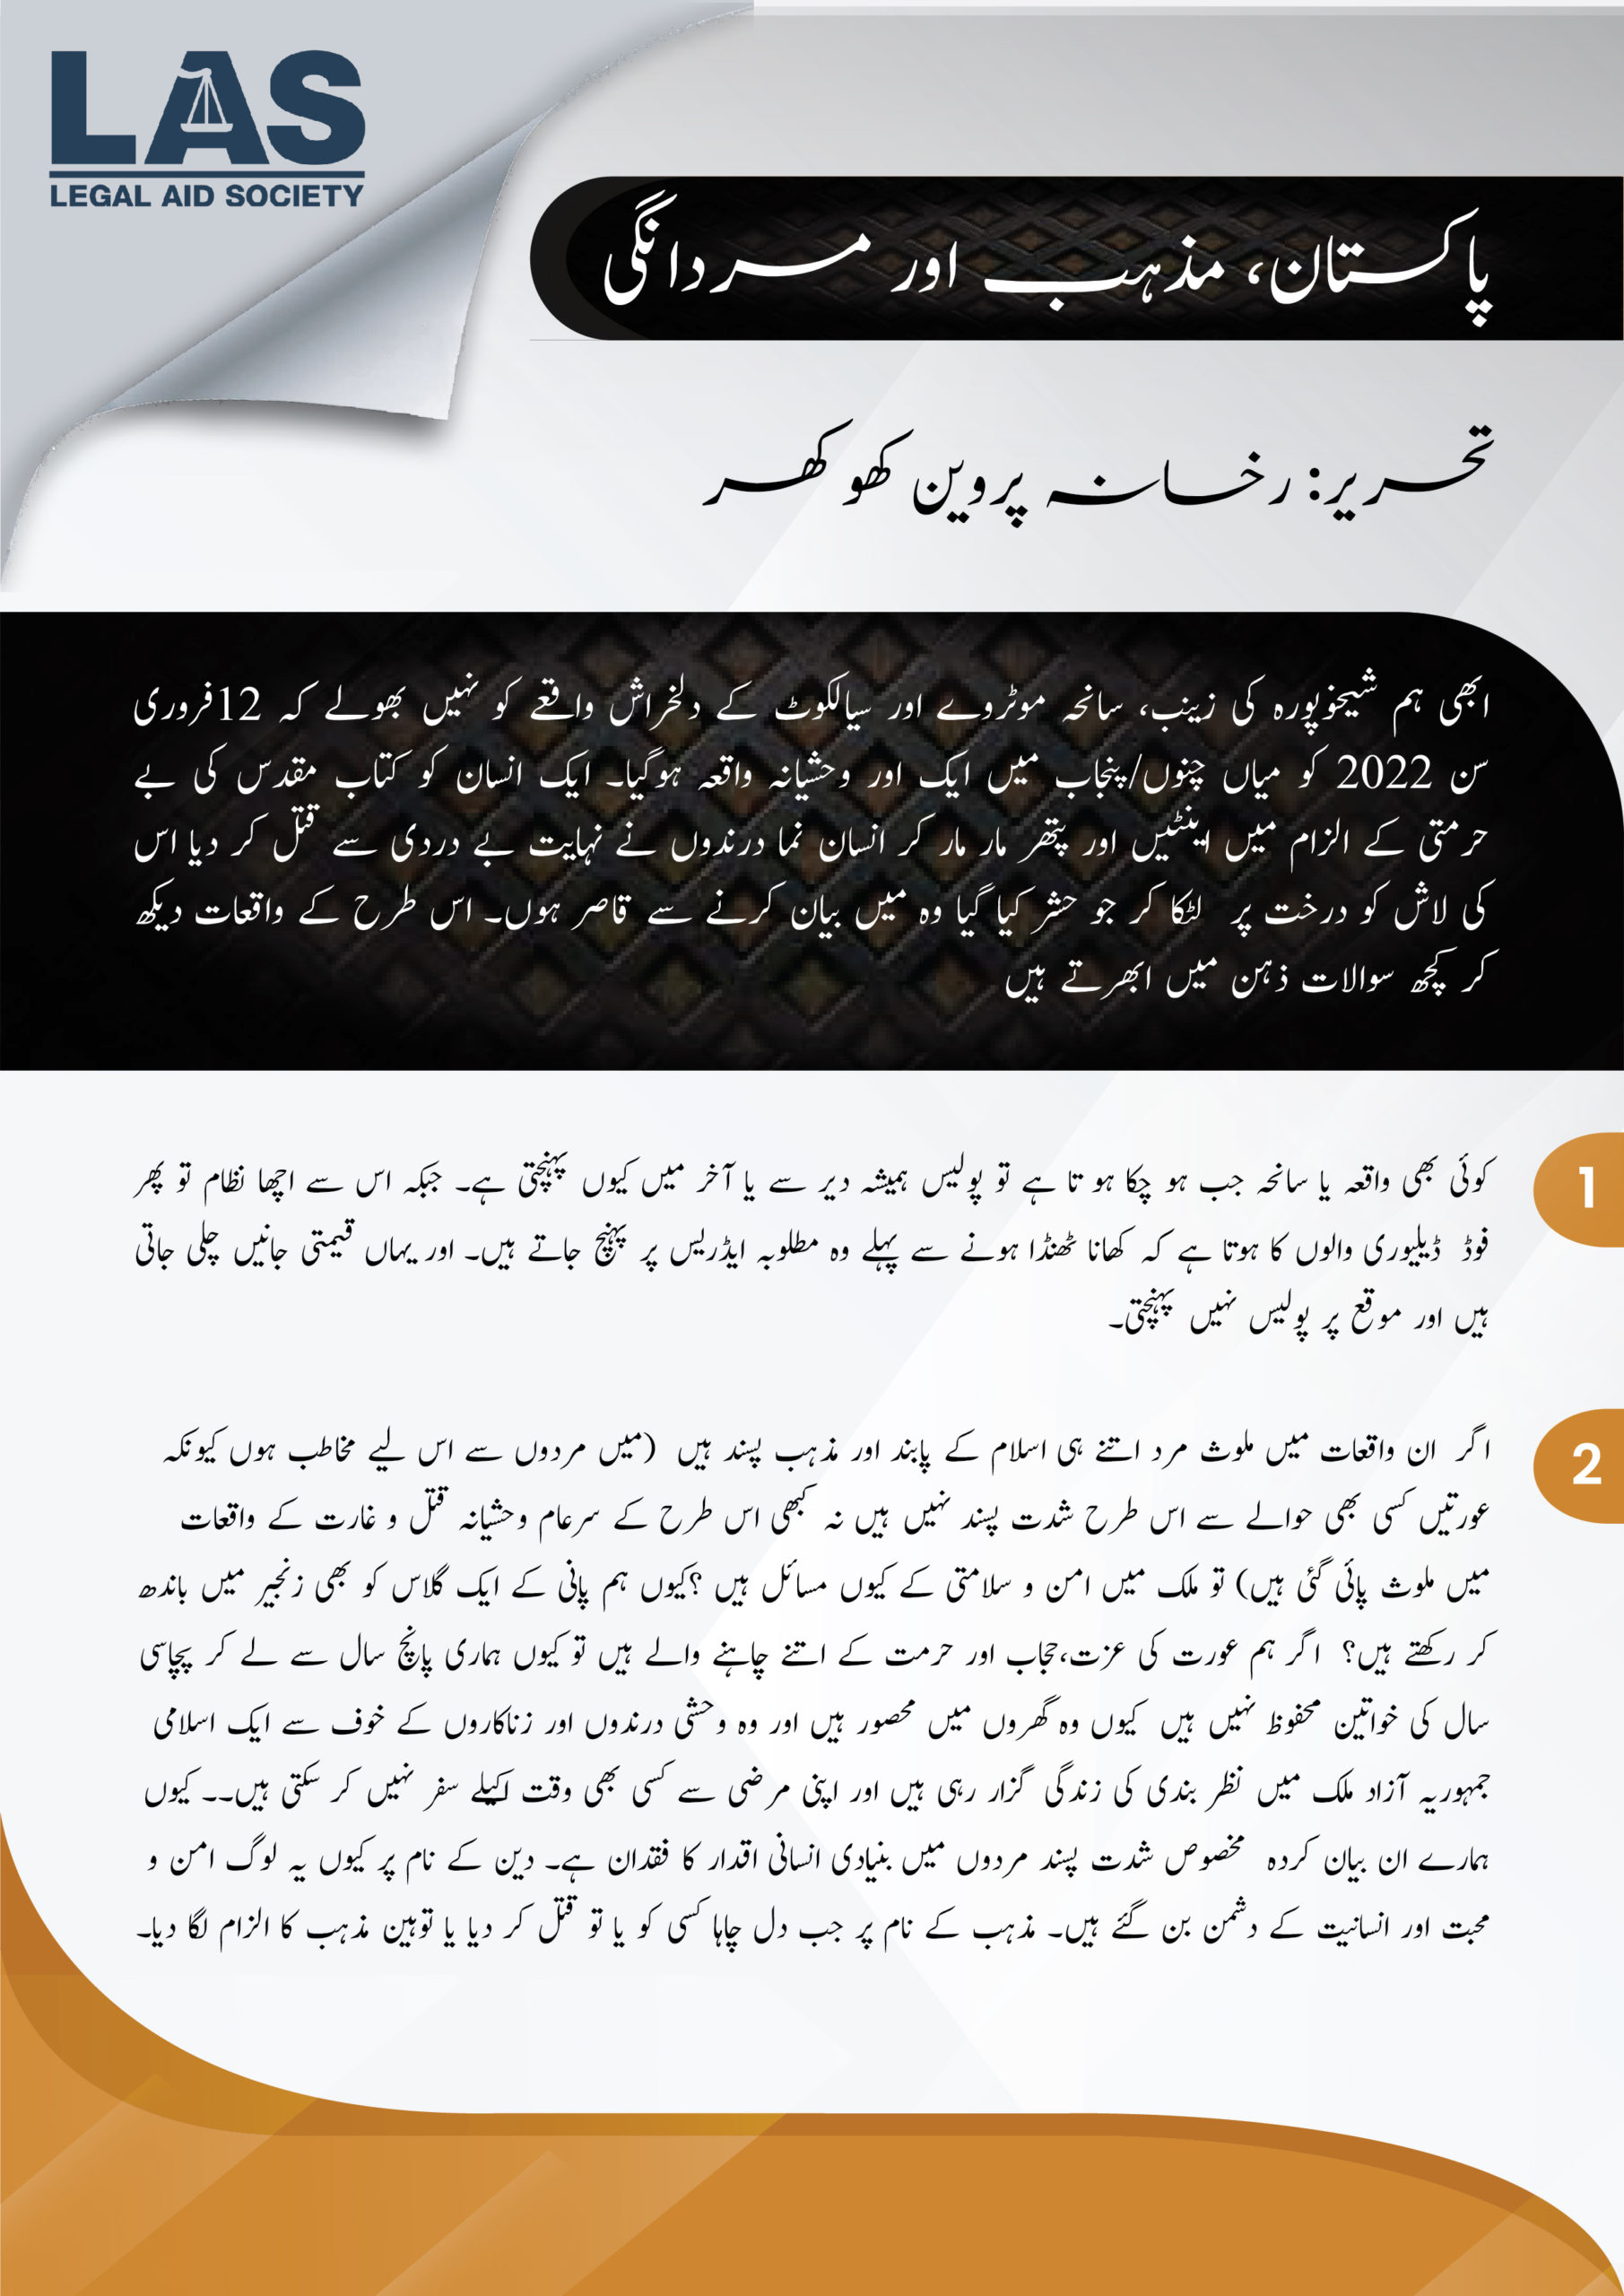 LAS
LEGAL AID SOCIETY
پاکستان، مذہب اور مردانگی
تحریر: رخسانہ پروین کھوکھر
ابھی ہم شیخوپورہ کی زینب، سانحہ موٹروے اور سیالکوٹ کے دلخراش واقعے کو نہیں بھولے کہ 12فروری
سن 2022 کو میاں چنوں/پنجاب میں ایک اور وحشیانہ واقعہ ہوگیا۔ ایک انسان کو کتاب مقدس کی بے
حرمتی کے الزام میں اینٹیں اور پتھر مار مار کر انسان نما درندوں نے نہایت بے دردی سے قتل کر دیا اس
کی لاش کو درخت پر لٹکا کر جو حشر کیا گیا وہ میں بیان کرنے سے قاصر ہوں۔ اس طرح کے واقعات دیکھ
کر کچھ سوالات ذہن میں ابھرتے ہیں
1
کوئی بھی واقعہ یا سانحہ جب ہو چکا ہو تا ہے تو پولیس ہمیشہ دیر سے یا آخر میں کیوں پہنچتی ہے۔ جبکہ اس سے اچھا نظام تو پھر
فوڈ ڈیلیوری والوں کا ہوتا ہے کہ کھانا ٹھنڈا ہونے سے پہلے وہ مطلوبہ ایڈریس پر پہنچ جاتے ہیں۔ اور یہاں قیمتی جانیں چلی جاتی
ہیں اور موقع پر پولیس نہیں پہنچتی۔
2
اگر ان واقعات میں ملوث مرد اتنے ہی اسلام کے پابند اور مذہب پسند ہیں (میں مردوں سے اس لیے مخاطب ہوں کیونکہ
عورتیں کسی بھی حوالے سے اس طرح شدت پسند نہیں ہیں نہ کبھی اس طرح کے سرعام وحشیانہ قتل و غارت کے واقعات
میں ملوث پائی گئی ہیں) تو ملک میں امن و سلامتی کے کیوں مسائل ہیں ؟کیوں ہم پانی کے ایک گلاس کو بھی زنجیر میں باندھ
کر رکھتے ہیں؟ اگر ہم عورت کی عزت،حجاب اور حرمت کے اتنے چاہنے والے ہیں تو کیوں ہماری پانچ سال سے لے کر پچاسی
سال کی خواتین محفوظ نہیں ہیں کیوں وہ گھروں میں محصور ہیں اور وہ وحشی درندوں اور زناکاروں کے خوف سے ایک اسلامی
جمہوریہ آزاد ملک میں نظر بندی کی زندگی گزار رہی ہیں اور اپنی مرضی سے کسی بھی وقت اکیلے سفر نہیں کر سکتی ہیں۔۔ کیوں
ہمارے ان بیان کردہ مخصوص شدت پسند مردوں میں بنیادی انسانی اقدار کا فقدان ہے۔ دین کے نام پر کیوں یہ لوگ امن و
محبت اور انسانیت کے دشمن بن گئے ہیں۔ مذہب کے نام پر جب دل چاہا کسی کو یا تو قتل کر دیا یا توہین مذہب کا الزام لگا دیا۔